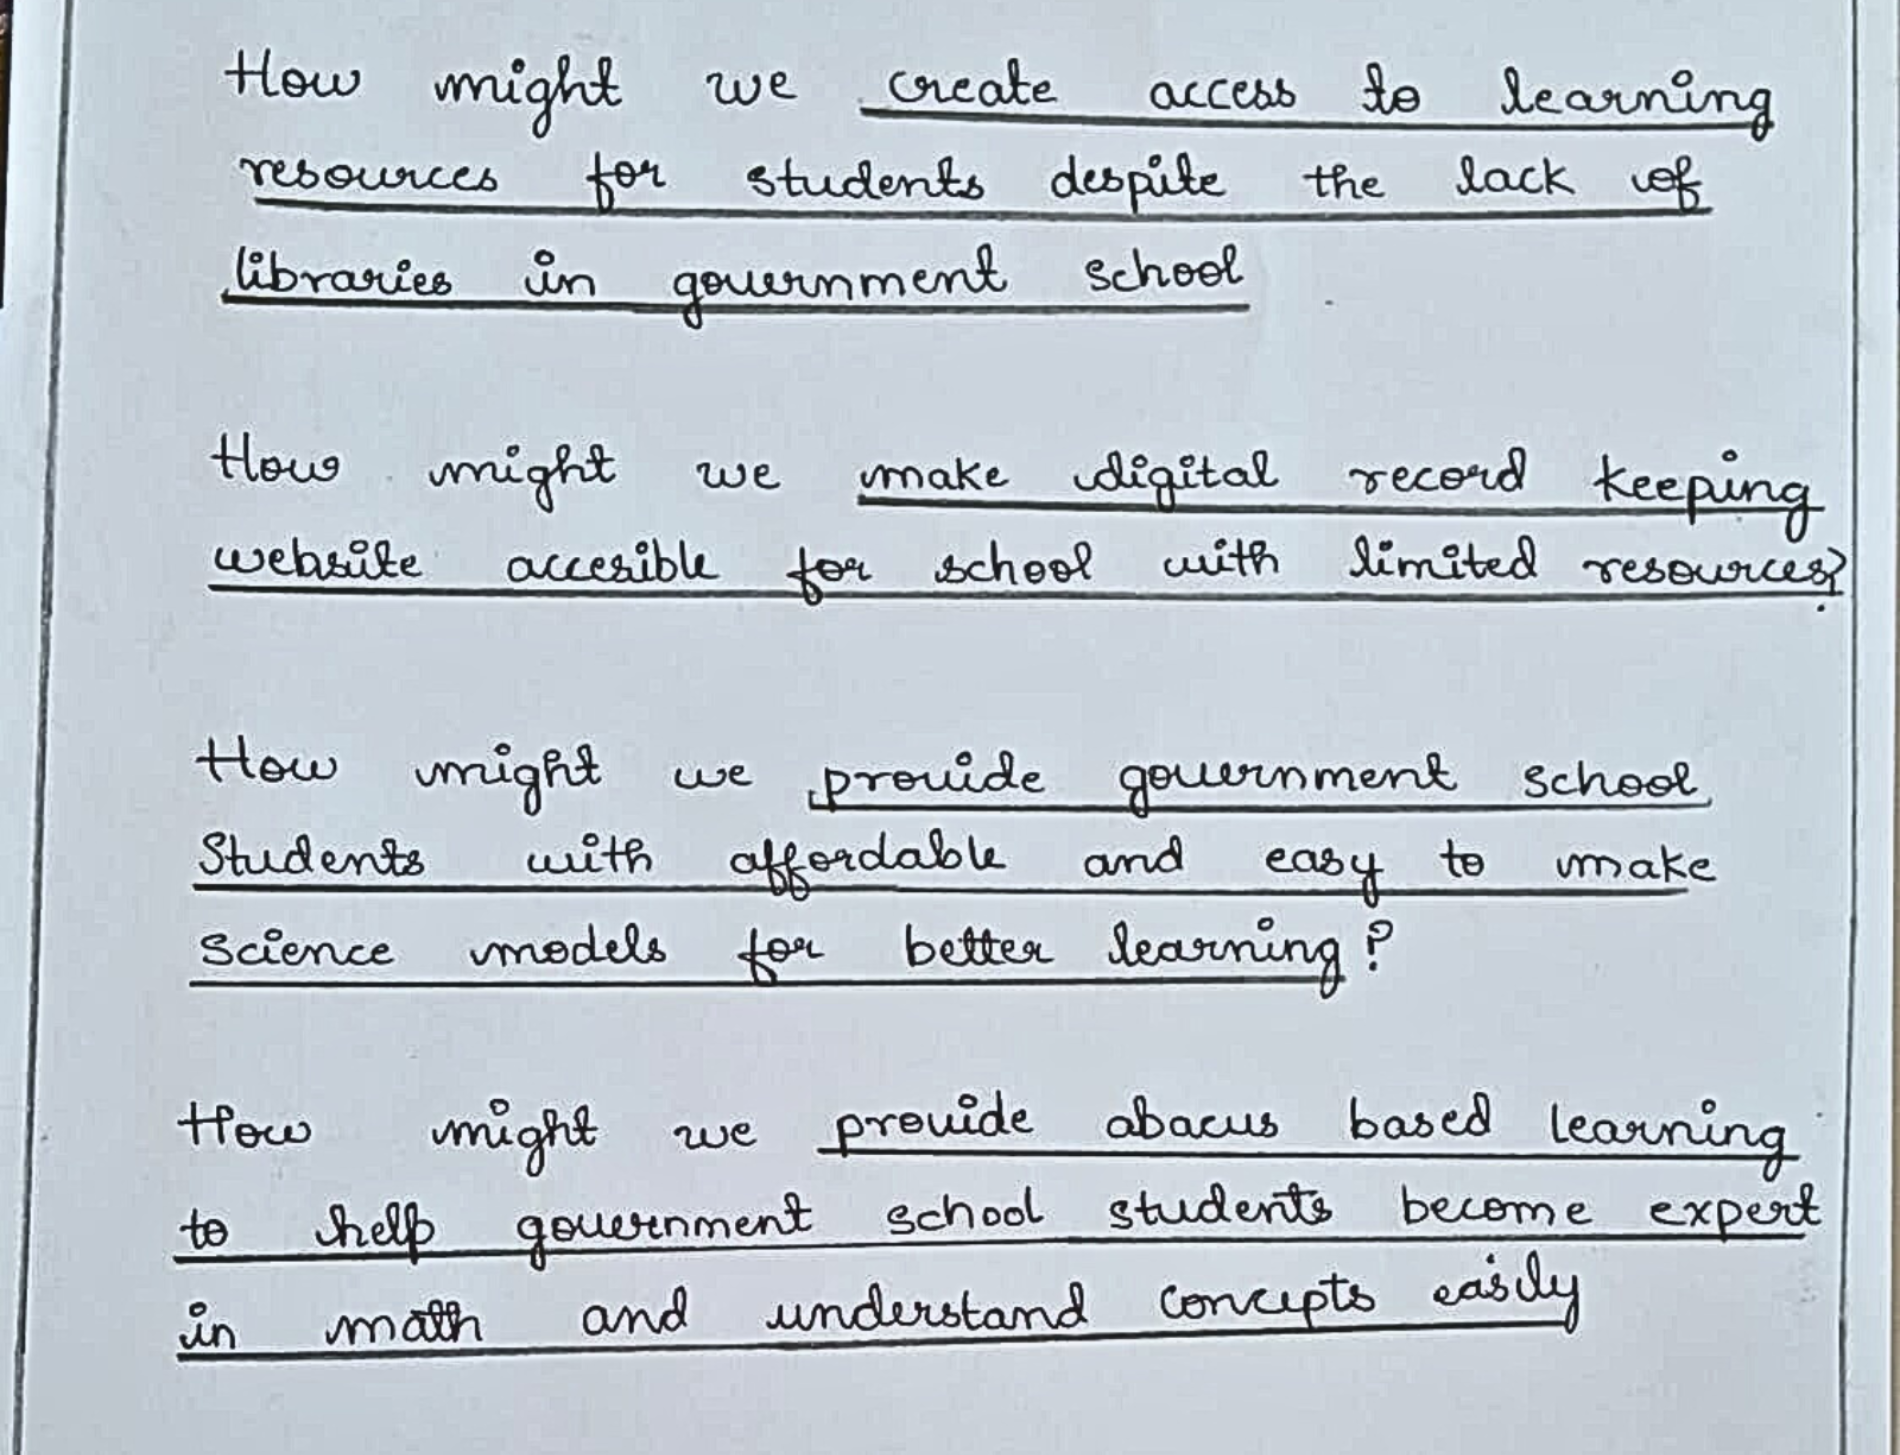 How might we create access to learning
resources for students despite the lack of
libraries in government school
How might we make digital record keeping
website accesible for school with limited resources?
How might we provide government school
Students with affordable and easy to make
Science models for better learning?
How might we provide abacus based learning
to help government school students become expert
in math and understand concepts easily